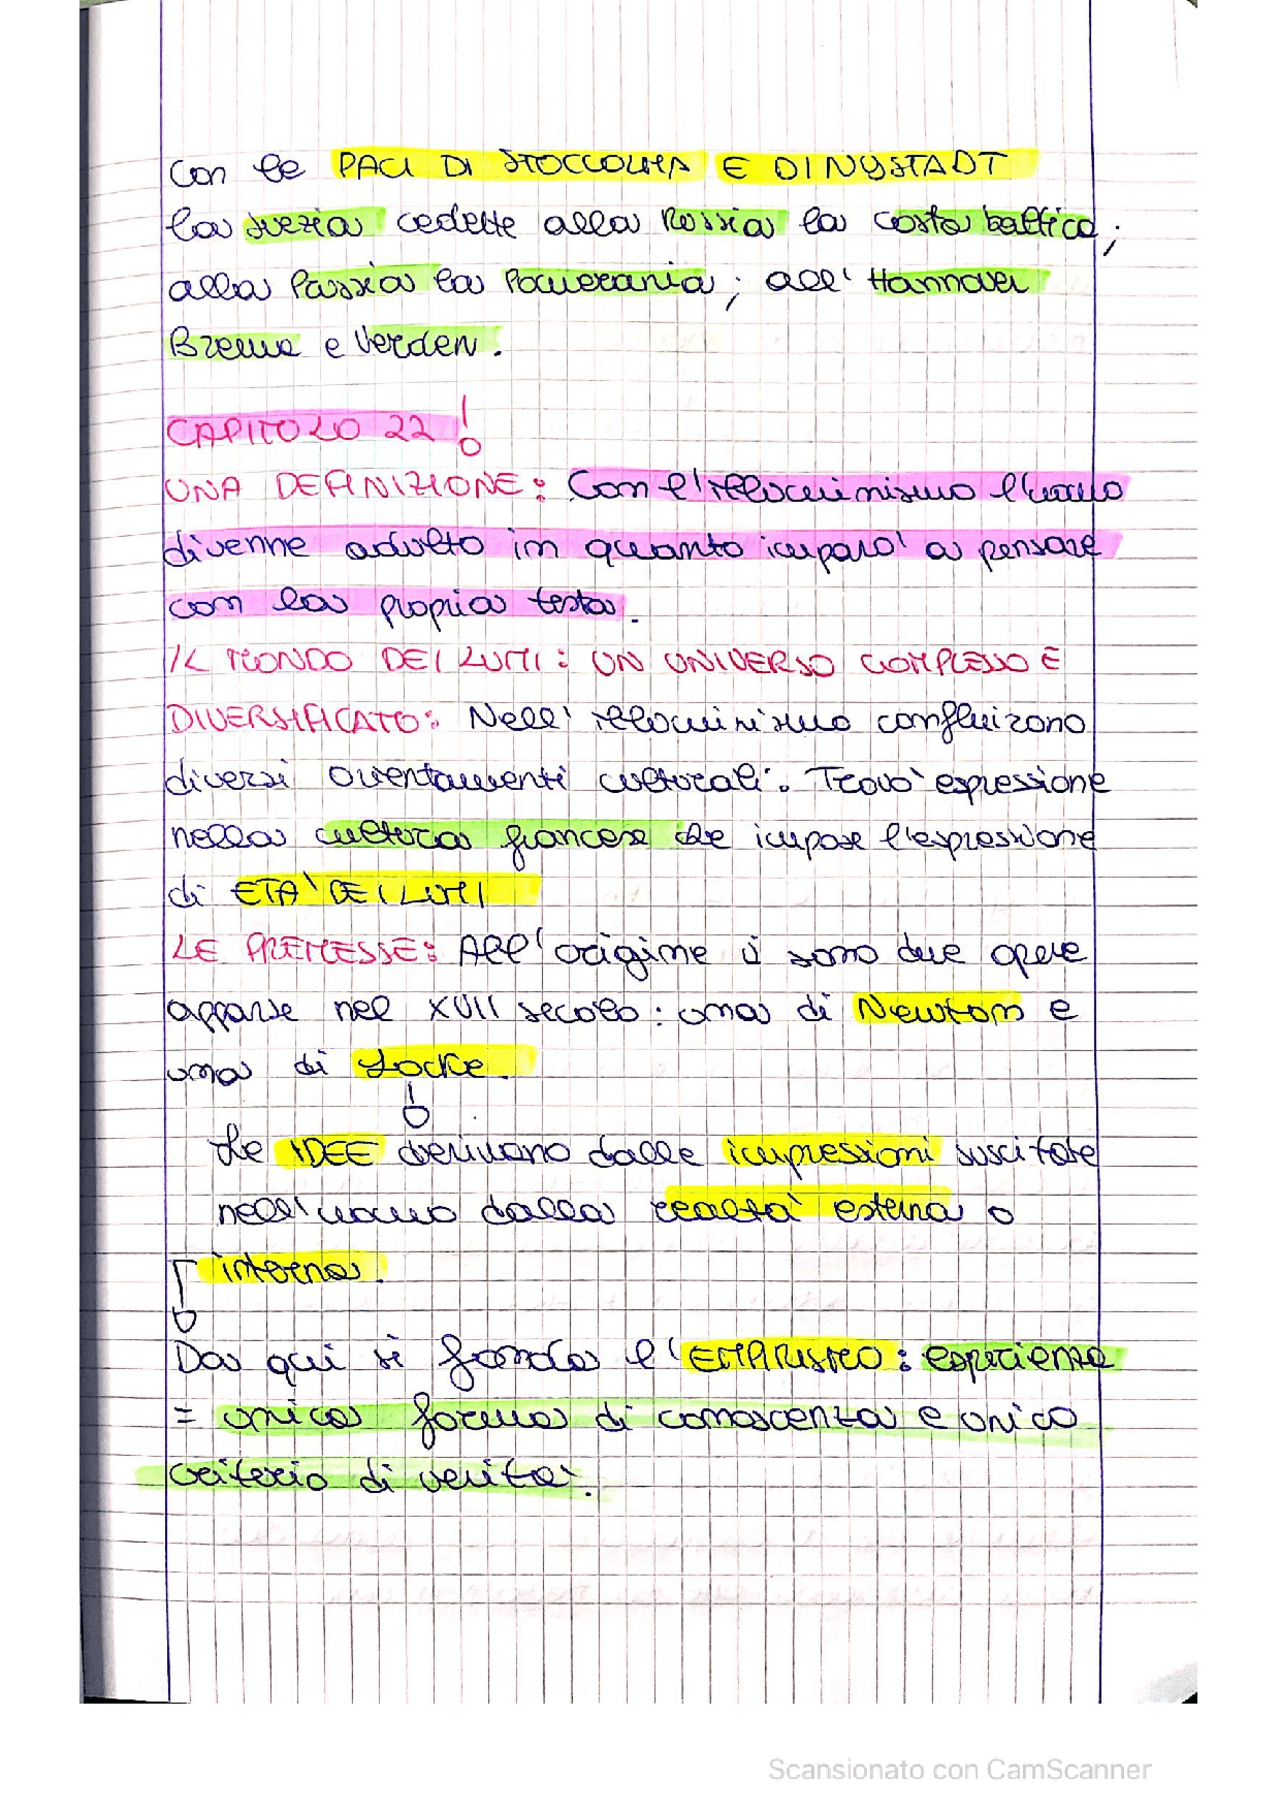 Con le PACI DI STOCCOLMA E DI NYSTADT
la svezia cedette alla Russia la costa baltica;
alla Prussia la Pomerania; all' Hannover
Brema e Verden.
CAPITOLO 22
UNA DEFINIZIONE: Con l'illuminismo l'uomo
divenne adulto in quanto imparo' a pensare
con la propria testa.
IL MONDO DEI LUMI: UN UNIVERSO COMPLESSO E
DIVERSIFICATO: Nell' illuminismo confluirono
diversi orientamenti culturali. Trovo' espressione
nella cultura francese che impose l'espressione
di ETA' DEI LUMI
LE PREMESSE: All'origine ci sono due opere
apparse nel XVII secolo: una di Newton e
una di Locke.
Le IDEE derivano dalle impressioni suscitate
nell'uomo dalla realta' esterna o
interna.
Da qui si fonda l'EMPIRISMO: esperienza
= unica forma di conoscenza e unico
criterio di verita'.
Scansionato con CamScanner